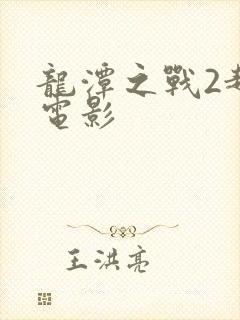 龍潭之戰2
電影
王洪亮